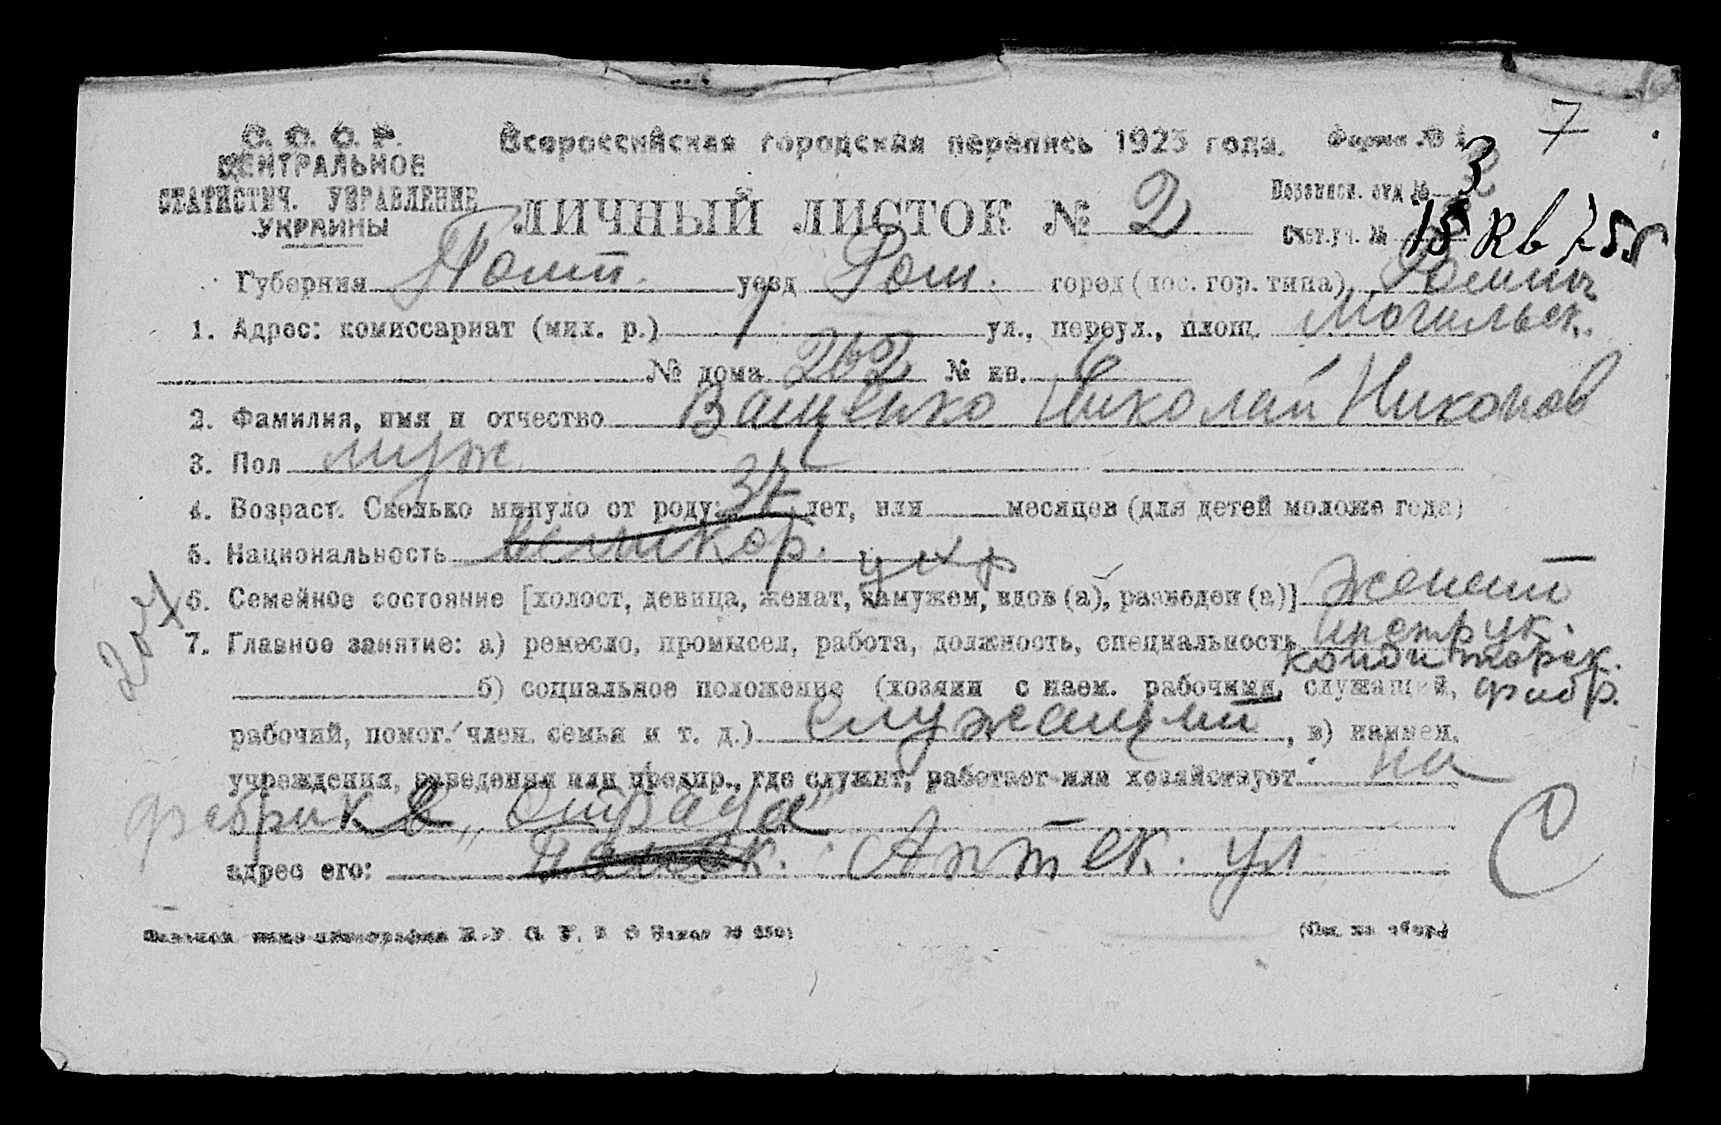 7
С. С. С. Р.
ЦЕНТРАЛЬНОЕ
СТАТИСТИЧ. УПРАВЛЕНИЕ
УКРАИНЫ
Всероссийская городская перепись 1923 года.
Форма № 1
ЛИЧНЫЙ ЛИСТОК № 2
Переписн. отд. № 3
Счет. уч. № 15 кв
Губерния Полт. уезд Ром. город (пос. гор. типа) Ромны
1. Адрес: комиссариат (мил. р.) 1 ул., переул., площ. Могильск.
№ дома № кв. 6
2. Фамилия, имя и отчество Ващенко Николай Никонов
3. Пол муж
4. Возраст. Сколько минуло от роду: 37 лет, или месяцев (для детей моложе года)
5. Национальность великор. укр
6. Семейное состояние [холост, девица, женат, замужем, вдов (а), разведен (а)] женат
7. Главное занятие: а) ремесло, промысел, работа, должность, специальность инструк.
кондиторск.
б) социальное положение (хозяин с наем. рабочими, служащий, фабр.
рабочий, помог. член. семьи и т. д.) служащий, в) наимен.
учреждения, заведения или предпр., где служит, работает или хозяйствует на
фабрике „Отрада"
адрес его: Аптек. ул
(См. на обор.)